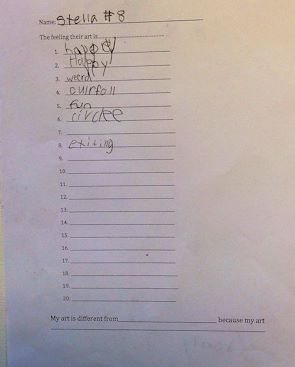 Name: Stella #8
The feeling their art is
1. happy
2. Happy
3. weerd
4. culrfoll
5. fun
6. circlee
7.
8. exiting
9.
10.
11.
12.
13.
14.
15.
16.
17.
18.
19.
20.
My art is different from because my art